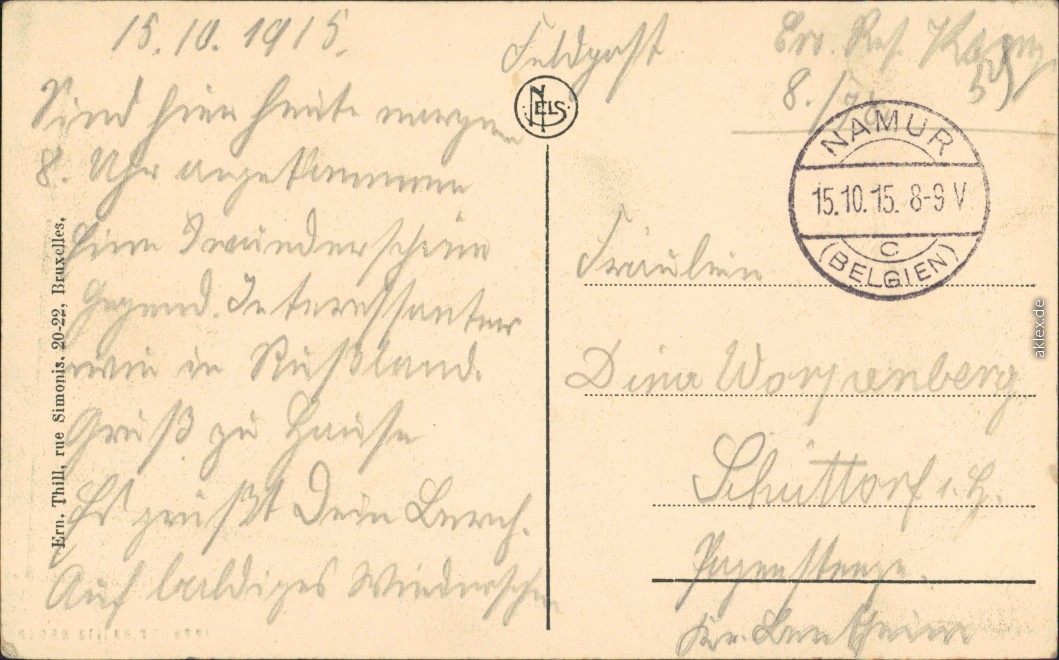 15.10.1915.
Sind hier heute morgen
8. Uhr angekommen
Eine wunderschöne
Gegend. Interessanter
wie in Rußland.
Gruß zu Hause
Es grüßt Dein
Auf baldiges Wiedersehn
Ern. Thill, rue Simonis, 20-22, Bruxelles.
NELS
Feldpost
Ers. Res.
8./78
NAMUR
15.10.15. 8-9 V
C
(BELGIEN)
Fräulein
Dina Worpenberg
Schüttorf i. H.
Kr. Bentheim
aklex.de